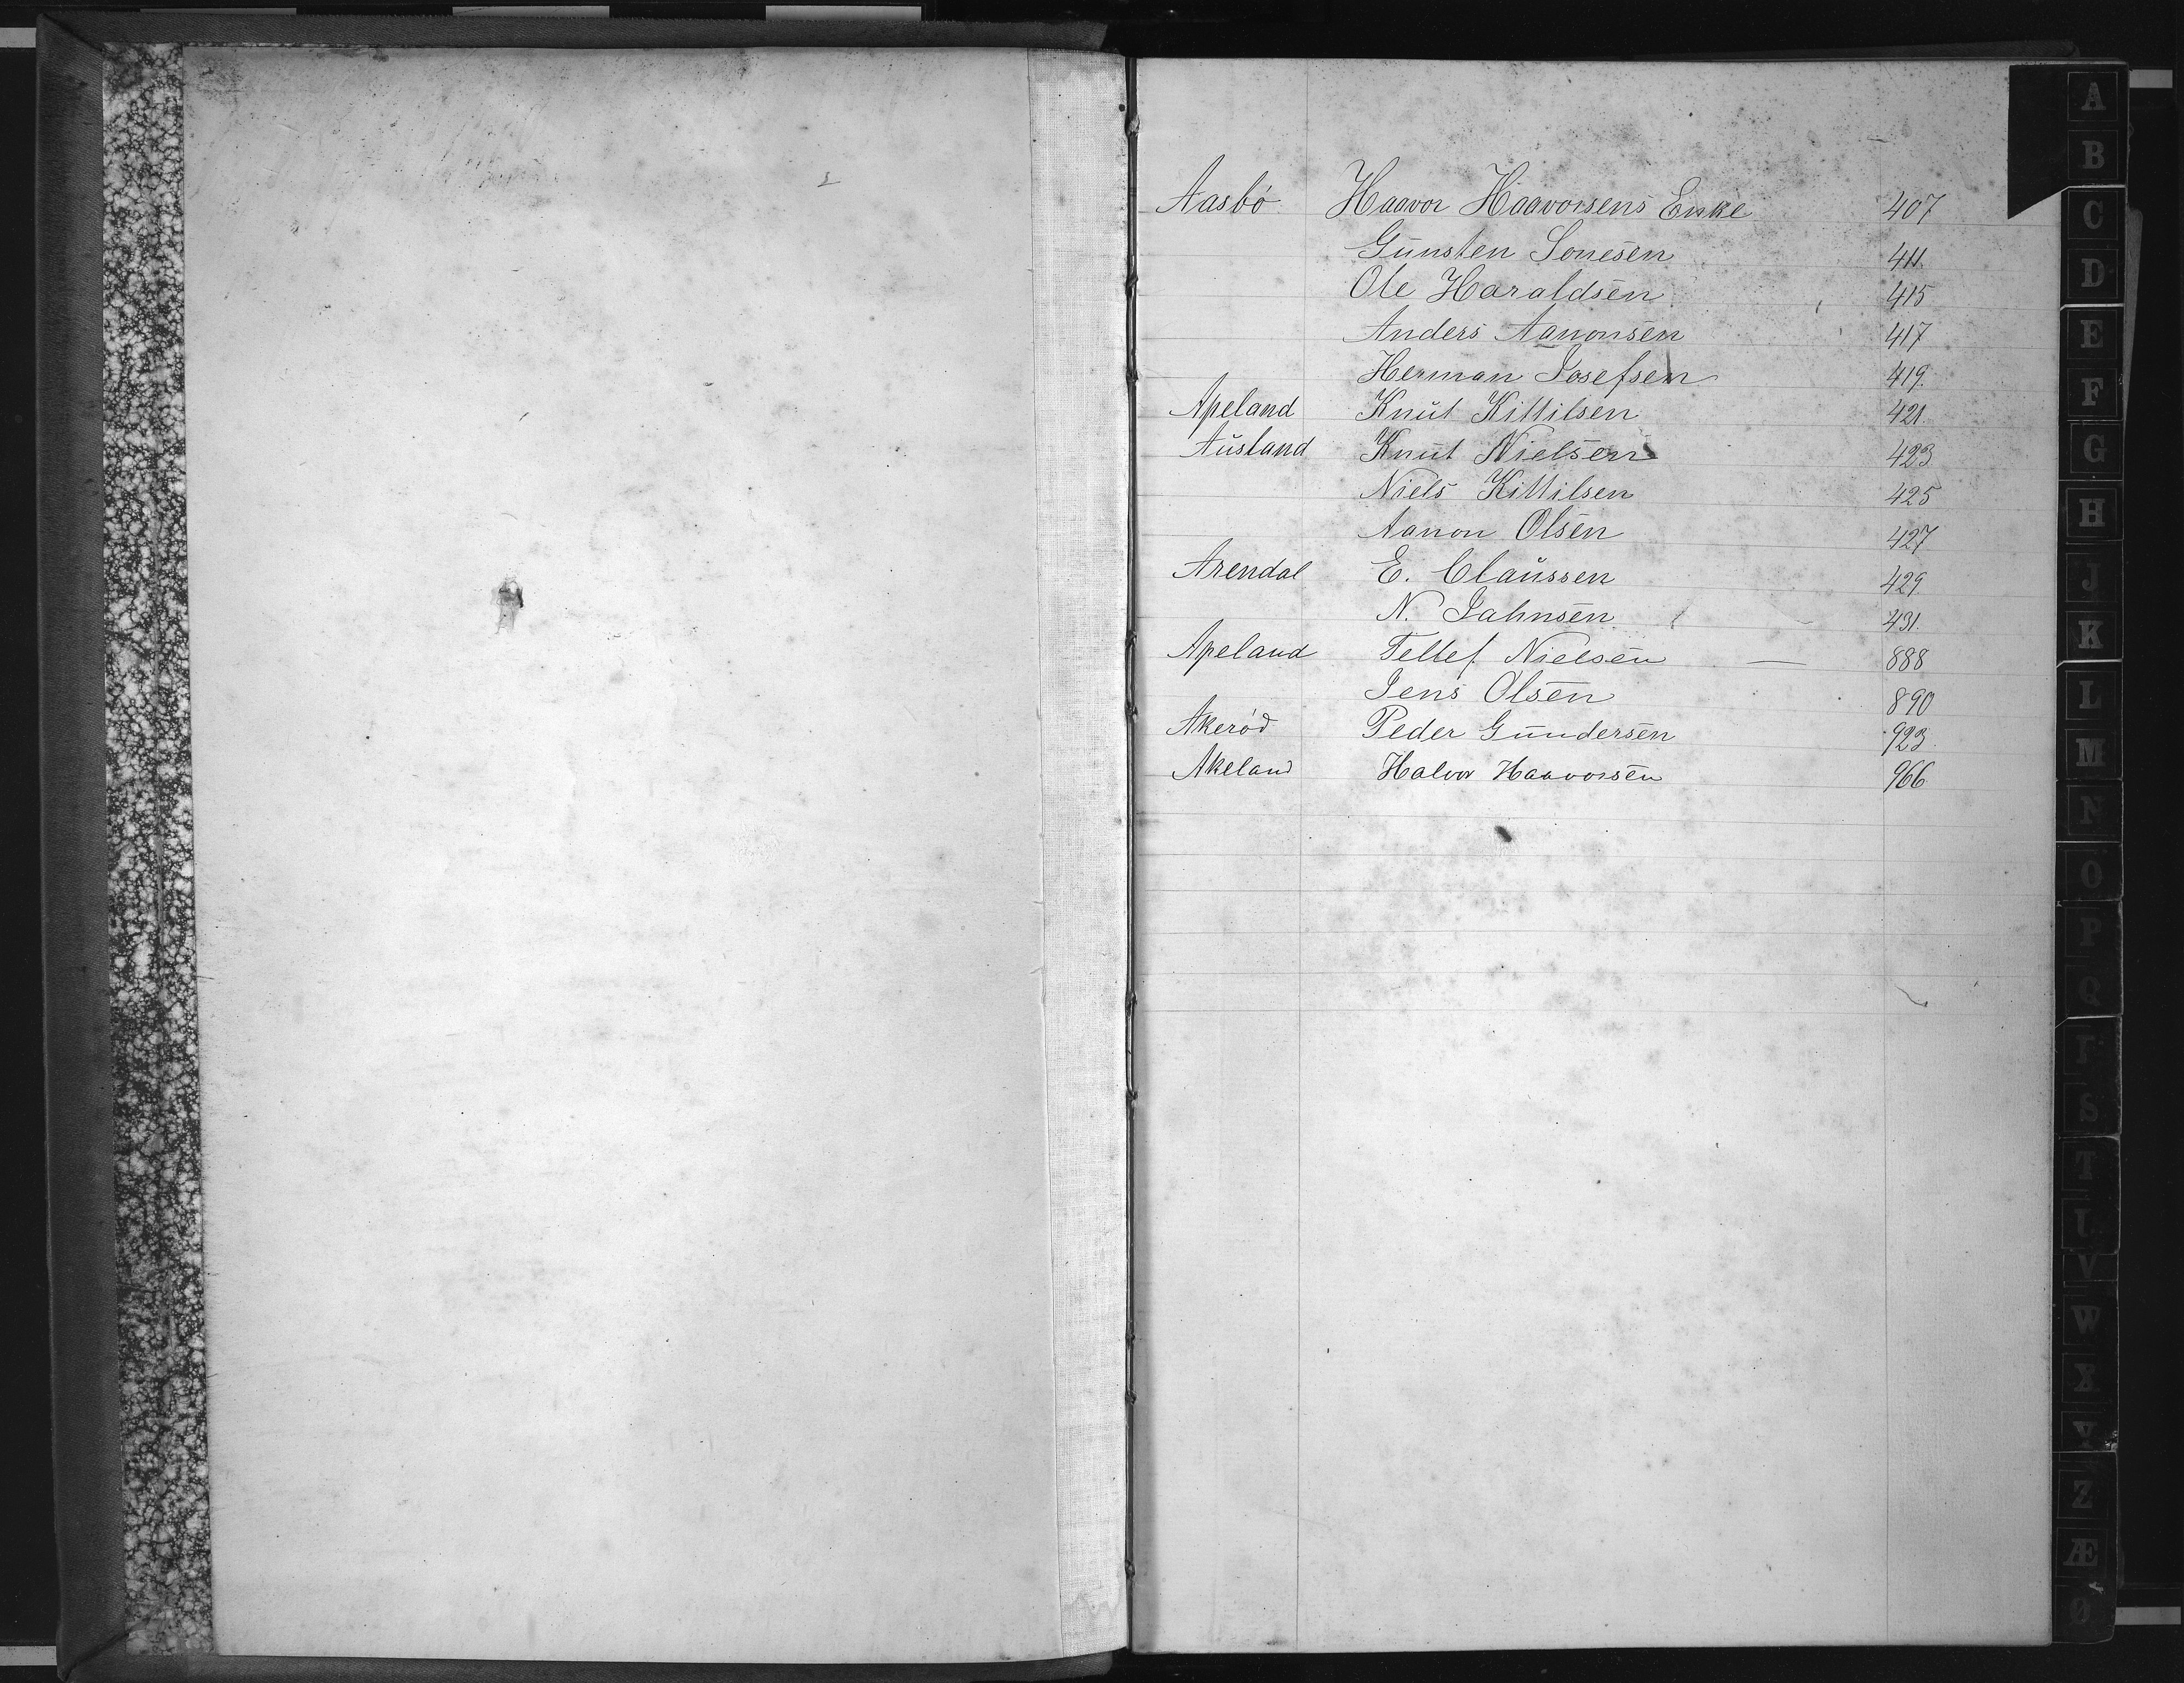 Aasbö Haavor Haavorsens Enke 407
Gunsten Sonesen 411.
Ole Haraldsen 415
Anders Aanonsen 417
Herman Josefsen 419.
Apeland Knut Kittilsen 421.
Ausland Knut Nielsen 423
Niels Kittilsen 425
Aanon Olsen 427
Arendal E. Claussen 429.
N. Jahnsen 431.
Apeland Tellef Nielsen — 888
Jens Olsen 890
Akeröd Peder Gundersen 923.
Akeland Halvor Haavorsen 966
A
B
C
D
E
F
G
H
J
K
L
M
N
O
P
Q
R
S
T
U
V
W
X
Y
Z
Æ
Ø